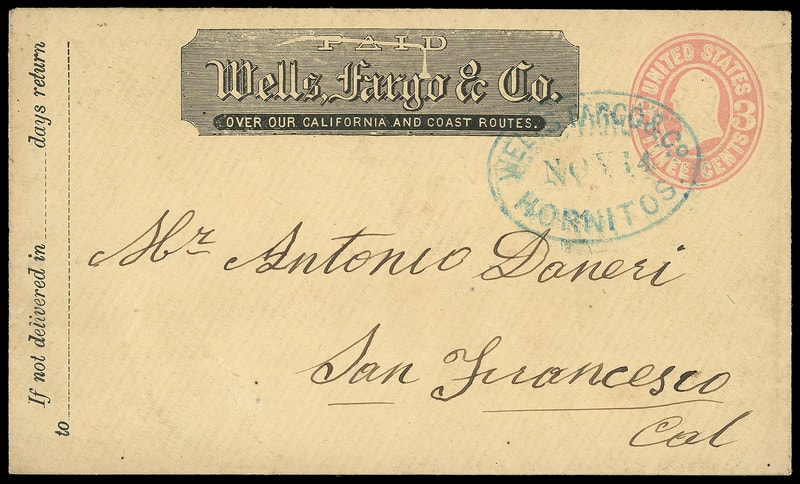 PAID
Wells, Fargo & Co.
OVER OUR CALIFORNIA AND COAST ROUTES.
UNITED STATES
3
THREE CENTS
WELLS FARGO & Co
NOV 14
HORNITOS.
If not delivered in days return
to
Mr Antonio Daneri
San Francesco
Cal